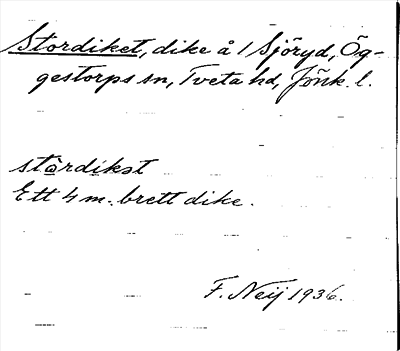 Stordiket, dike å 1 Sjöryd, Ög-
gestorps sn, Tveta hd, Jönk. l.
stòrdikət
Ett 4 m. brett dike.
F. Neij 1936.